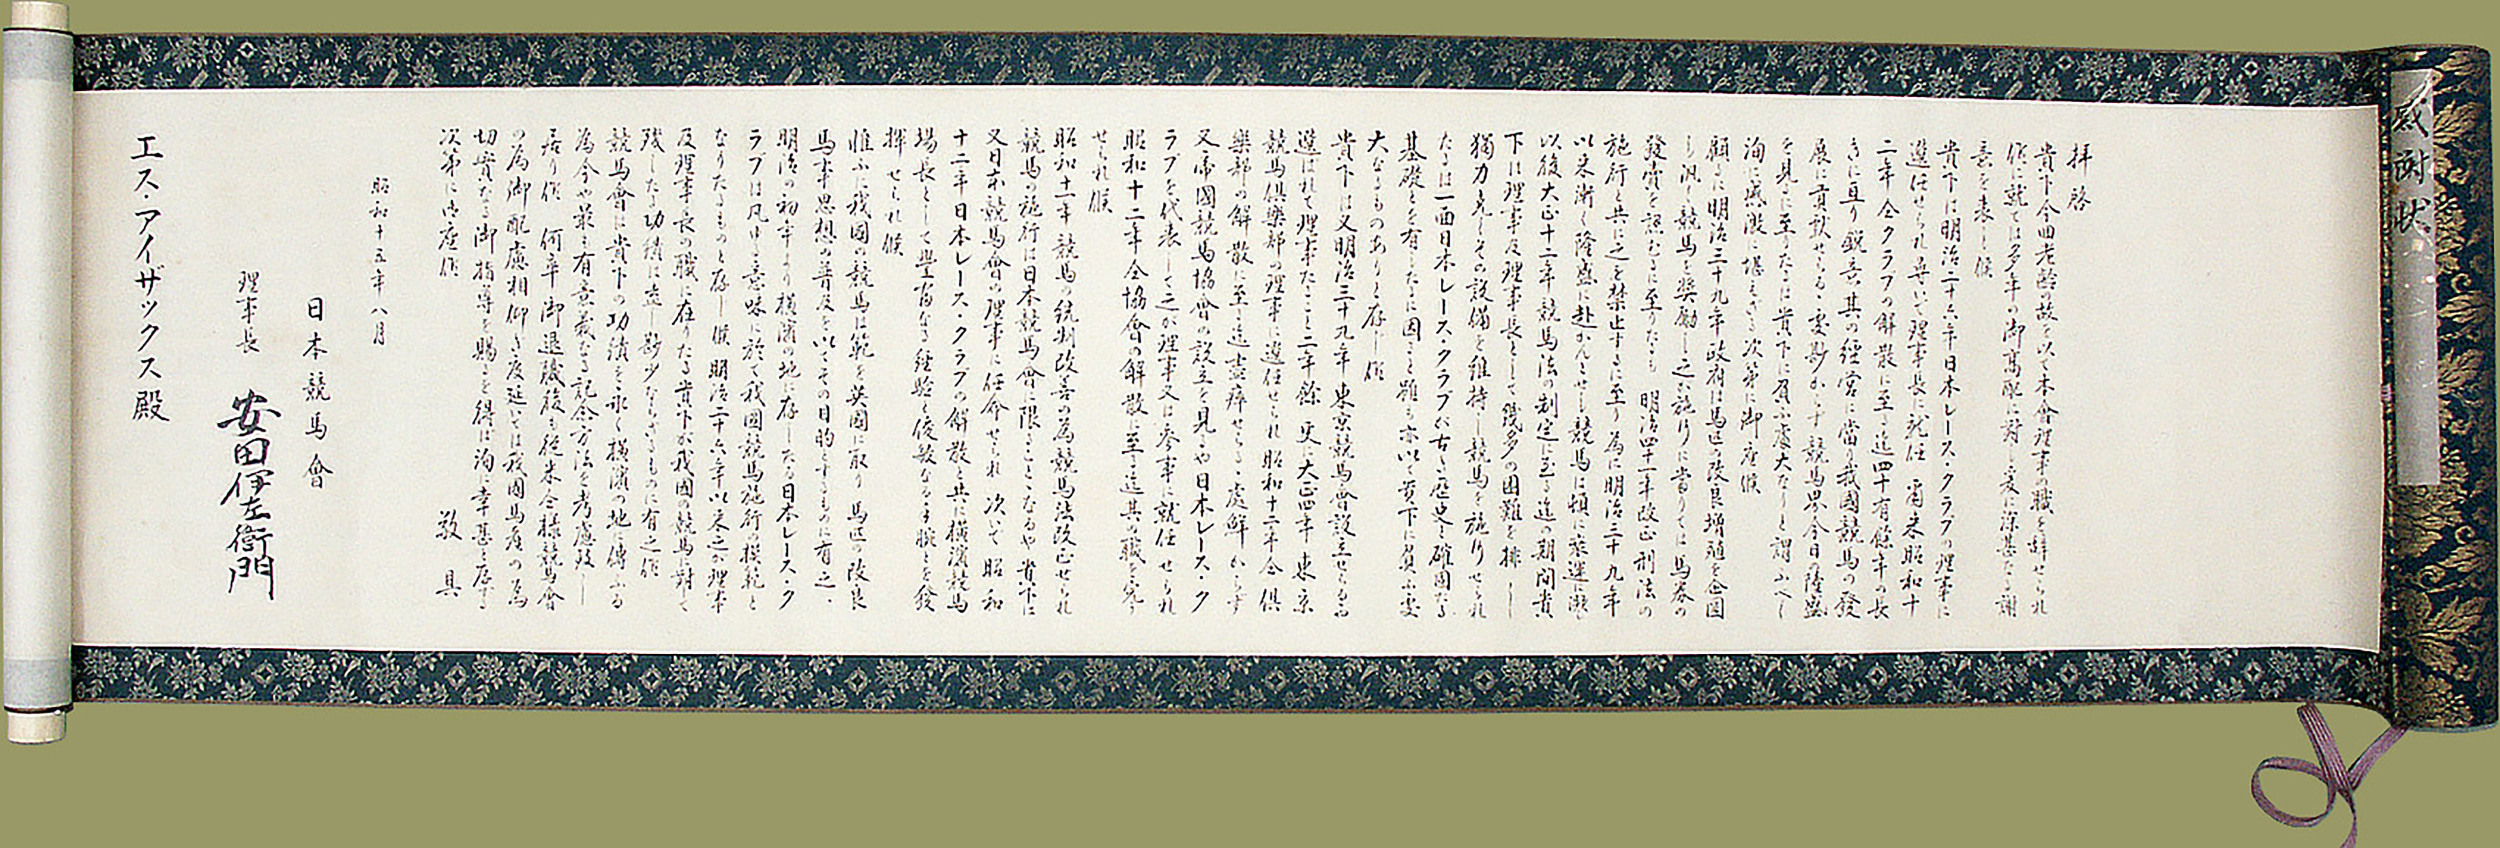 感謝状
拝啓
貴下今曲老齢の故を以て本會理事の職を辞せられ
候に就ては多年の御高配に対し爰に深甚なる謝
意を表し候
貴下は明治二十六年日本レース・クラブの理事に
選任せられ尋いで理事長に就任 爾来昭和十
二年仝クラブの解散に至る迄四十有餘年の長
きに亘り鋭意其の経営に當り我國競馬の發
展に貢献せらるゝ處尠からず競馬界今日の隆盛
を見るに至りたるは貴下に負ふ處大なりと謂ふべし
洵に感激に堪えざる次第に御座候
顧るに明治三十九年政府は馬匹の改良増殖を企図
し汎く競馬を奨励し之が施行に當りては馬券の
發賣を認むるに至りたるも 明治四十一年改正刑法の
施行と共に之を禁止するに至り為に明治三十九年
以来漸く隆盛に赴かんとせし競馬は頓に衰運に瀕し
以後大正十二年競馬法の制定に至る迄の期間貴
下は理事及理事長として幾多の困難を排し
獨力克くその設備を維持し競馬を施行せられ
たるは一面日本レース・クラブが古き歴史と確固たる
基礎とを有したるに因ると雖も亦以て貴下に負ふ處
大なるものありと存じ候
貴下は又明治三十九年東京競馬會設立せらるゝや
選ばれて理事たること二年餘 更に大正四年東京
競馬倶楽部の理事に選任せられ昭和十二年仝倶
楽部の解散に至る迄盡瘁せらるゝ處鮮からず
又帝國競馬協會の設立を見るや日本レース・ク
ラブを代表して之が理事又は参事に就任せられ
昭和十二年仝協會の解散に至る迄其の職を完う
せられ候
昭和十一年競馬の統制改善の為競馬法改正せられ
競馬の施行は日本競馬會に限ることゝなるや貴下は
又日本競馬會の理事に任命せられ 次いで昭和
十二年日本レース・クラブの解散と共に横濱競馬
場長として豊富なる経験と俊敏なる手腕とを發
揮せられ候
惟ふに我國の競馬は範を英國に取り 馬匹の改良
馬事思想の普及を以てその目的とするものに有之、
明治の初年より横濱の地に存したる日本レース・ク
ラブは凡ゆる意味に於て我國競馬施行の模範と
なりたるものと存じ候 明治二十六年以来之が理事
及理事長の職に在りたる貴下が我國の競馬に対して
残したる功績は蓋し尠少ならざるものに有之候
競馬會は貴下の功績を永く横濱の地に傳ふる
為今や最も有意義なる記念方法を考慮致し
居り候 何卒御退職後も従来仝様競馬會
の為御配慮相仰ぎ度延いては我國馬産の為
切實なる御指導を賜るを得ば洵に幸甚と存ずる
次第に御座候
敬具
昭和十五年八月
日本競馬會
理事長 安田伊左衛門
エス・アイザックス殿